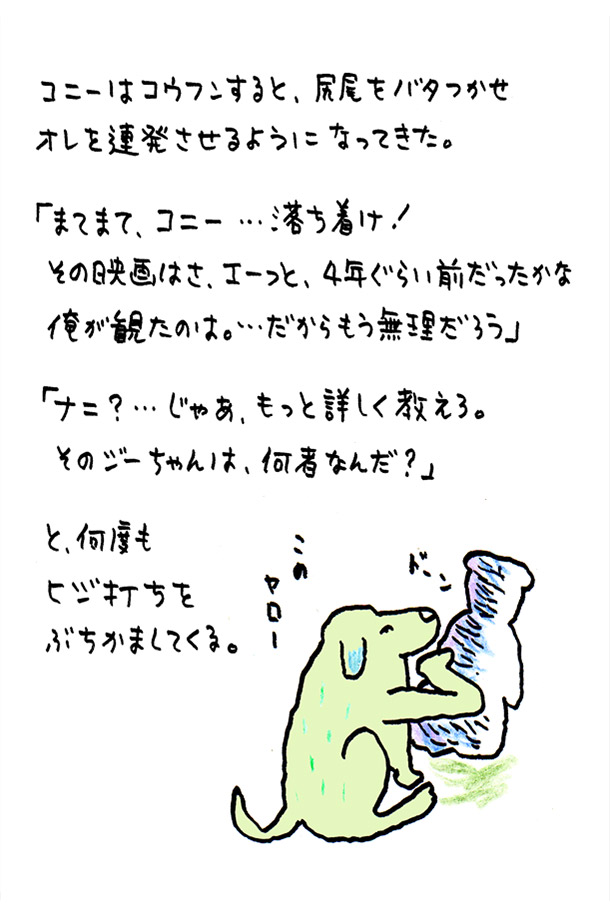 コニーはコウフンすると、尻尾をバタつかせ
オレを連発させるようになってきた。
「まてまて、コニー…落ち着け！
その映画はさ、エーっと、4年ぐらい前だったかな
俺が観たのは。…だからもう無理だろう」
「ナニ？…じゃあ、もっと詳しく教えろ。
そのジーちゃんは、何者なんだ？」
と、何度も
ヒジ打ちを
ぶちかましてくる。
この
ヤロー
ドーン